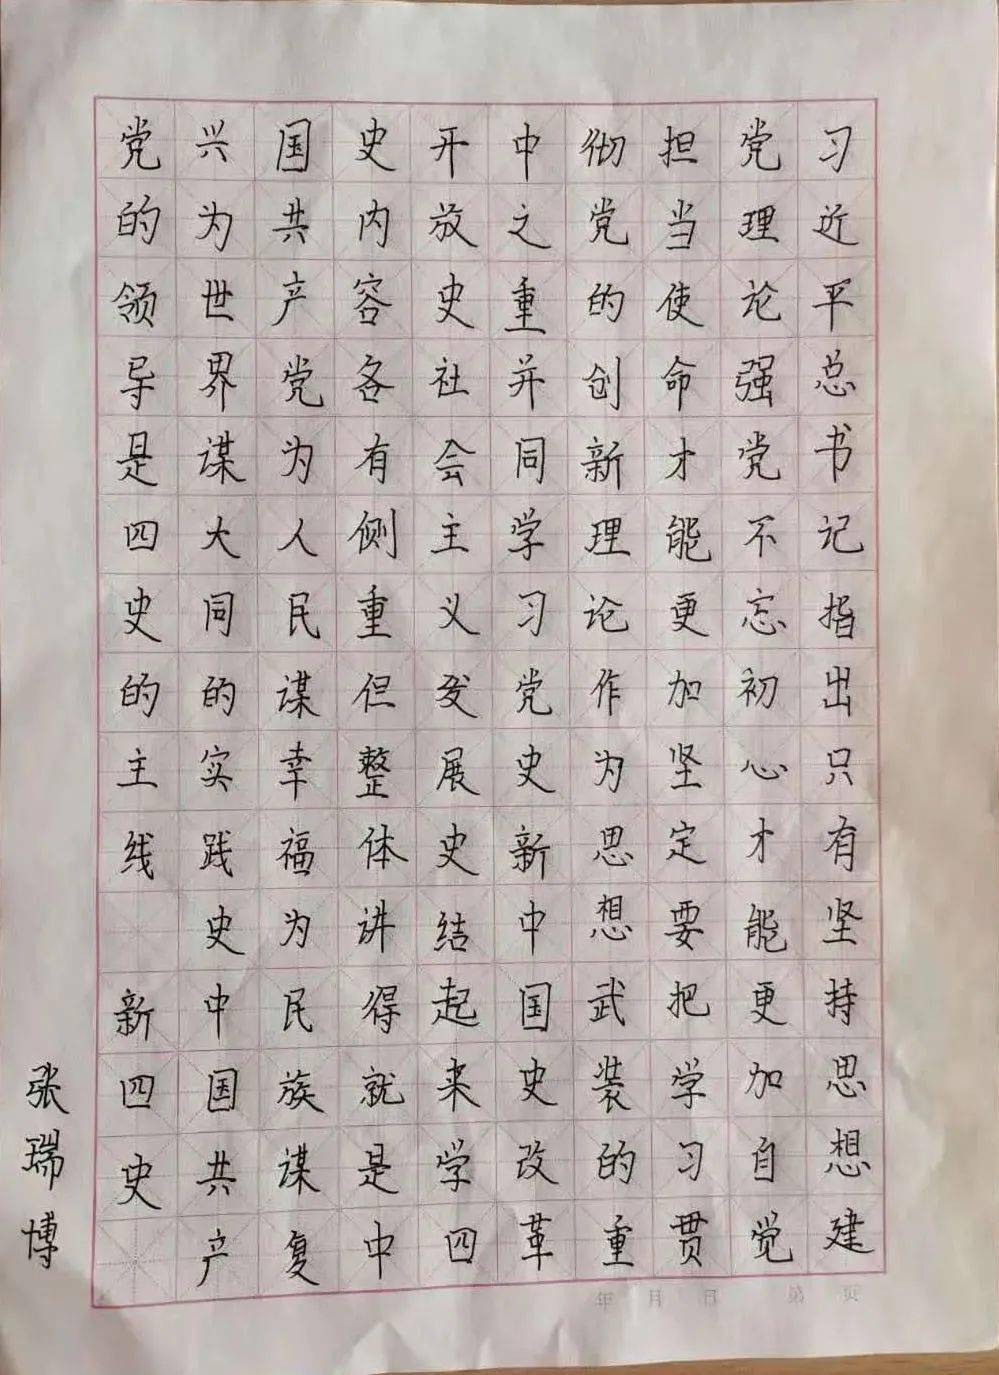 习近平总书记指出只有坚持思想建
党理论强党不忘初心才能更加自觉
担当使命才能更加坚定要把学习贯
彻党的创新理论作为思想武装的重
中之重并同学习党史新中国史改革
开放史社会主义发展史结起来学四
史内容各有侧重但整体讲得就是中
国共产党为人民谋幸福为民族谋复
兴为世界谋大同的实践史中国共产
党的领导是四史的主线 新四史
张瑞博
年 月 日 第 页